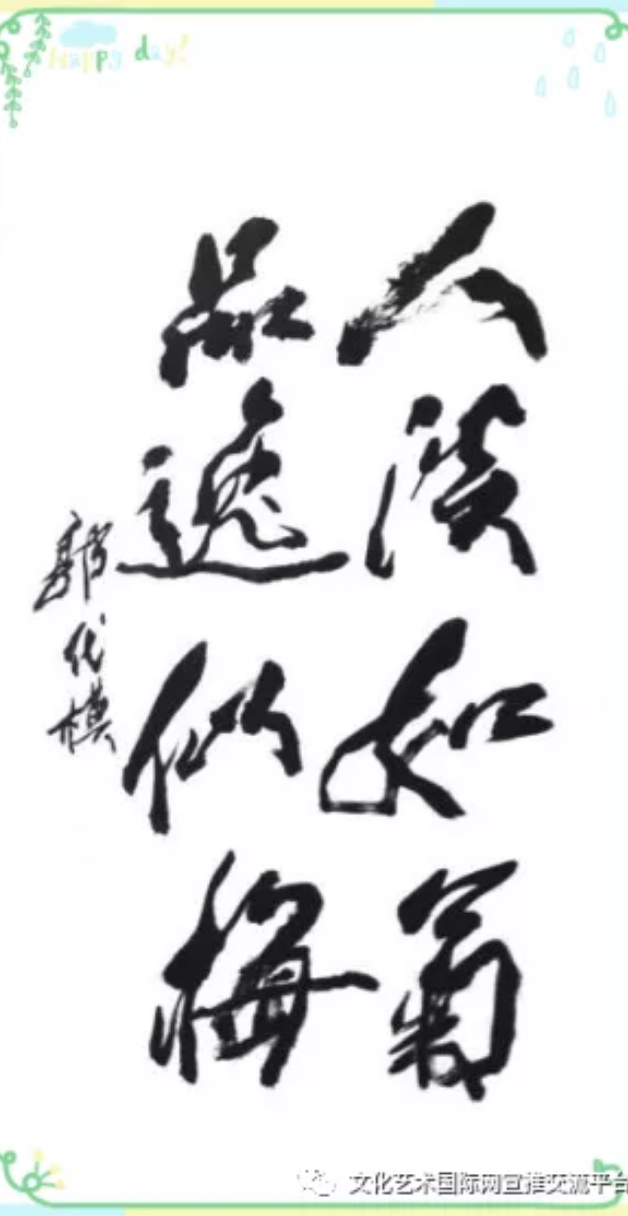 Happy day!
人淡如菊
品逸似梅
郭代模
文化艺术国际网宣推交流平台